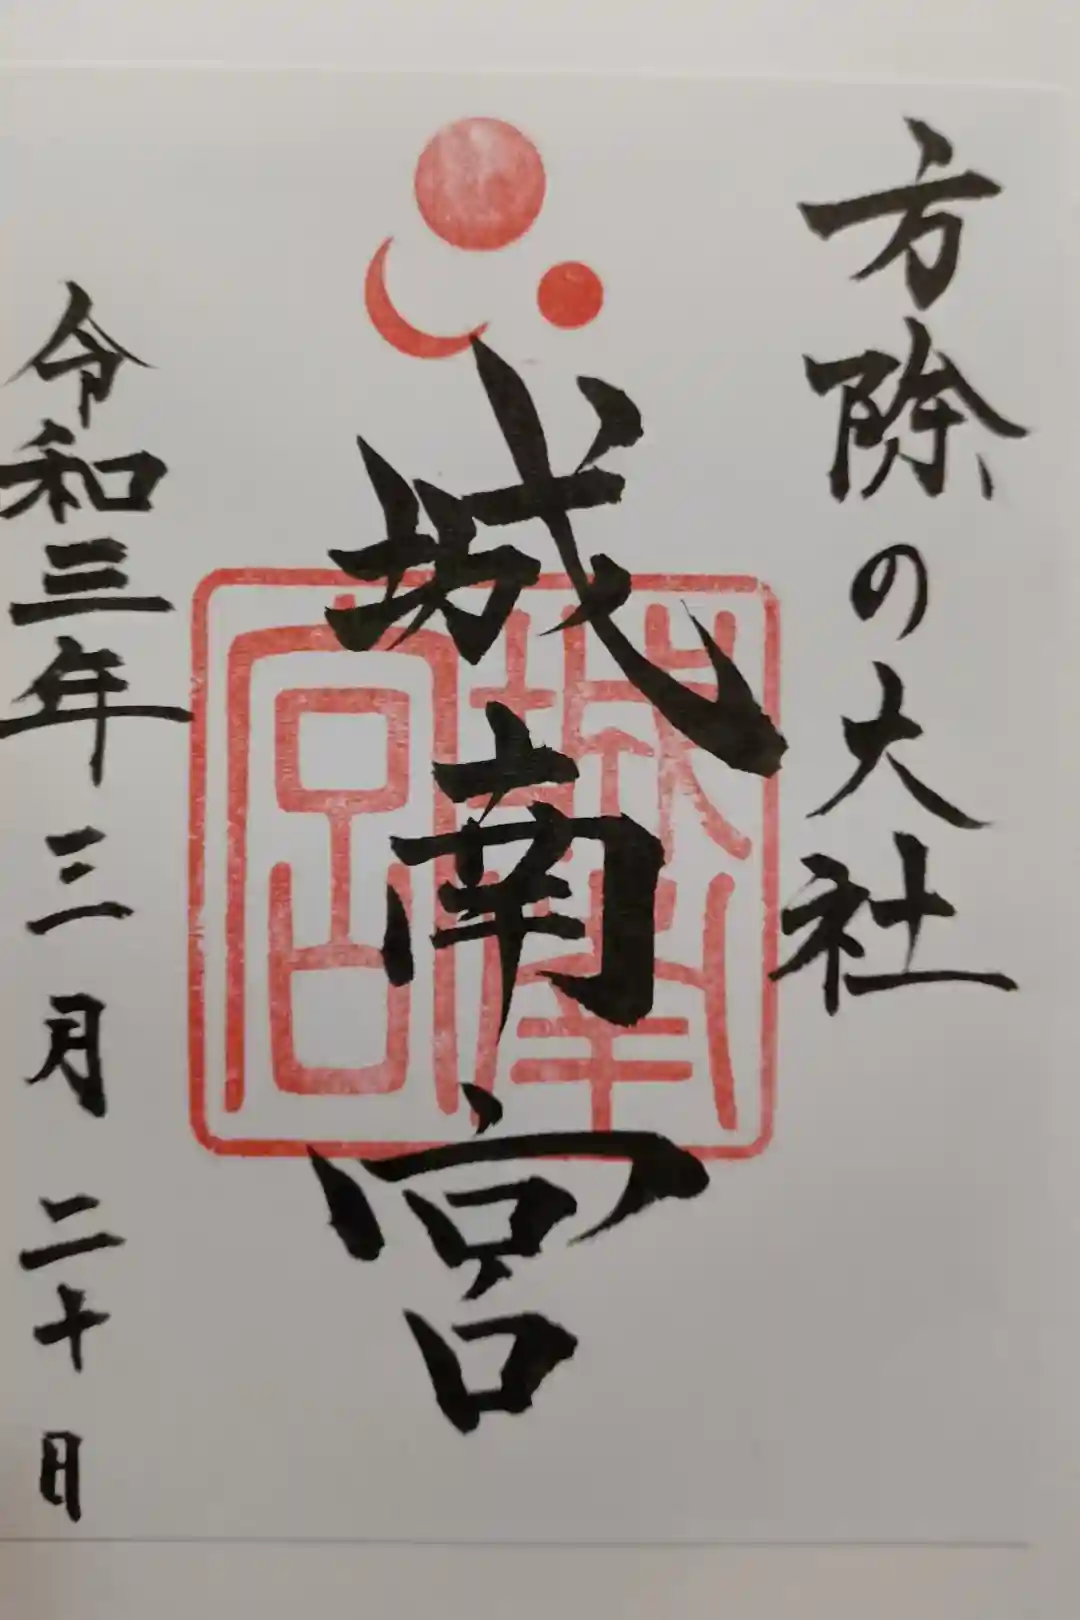 方除の大社
城南宮
城南宮
令和三年三月二十日